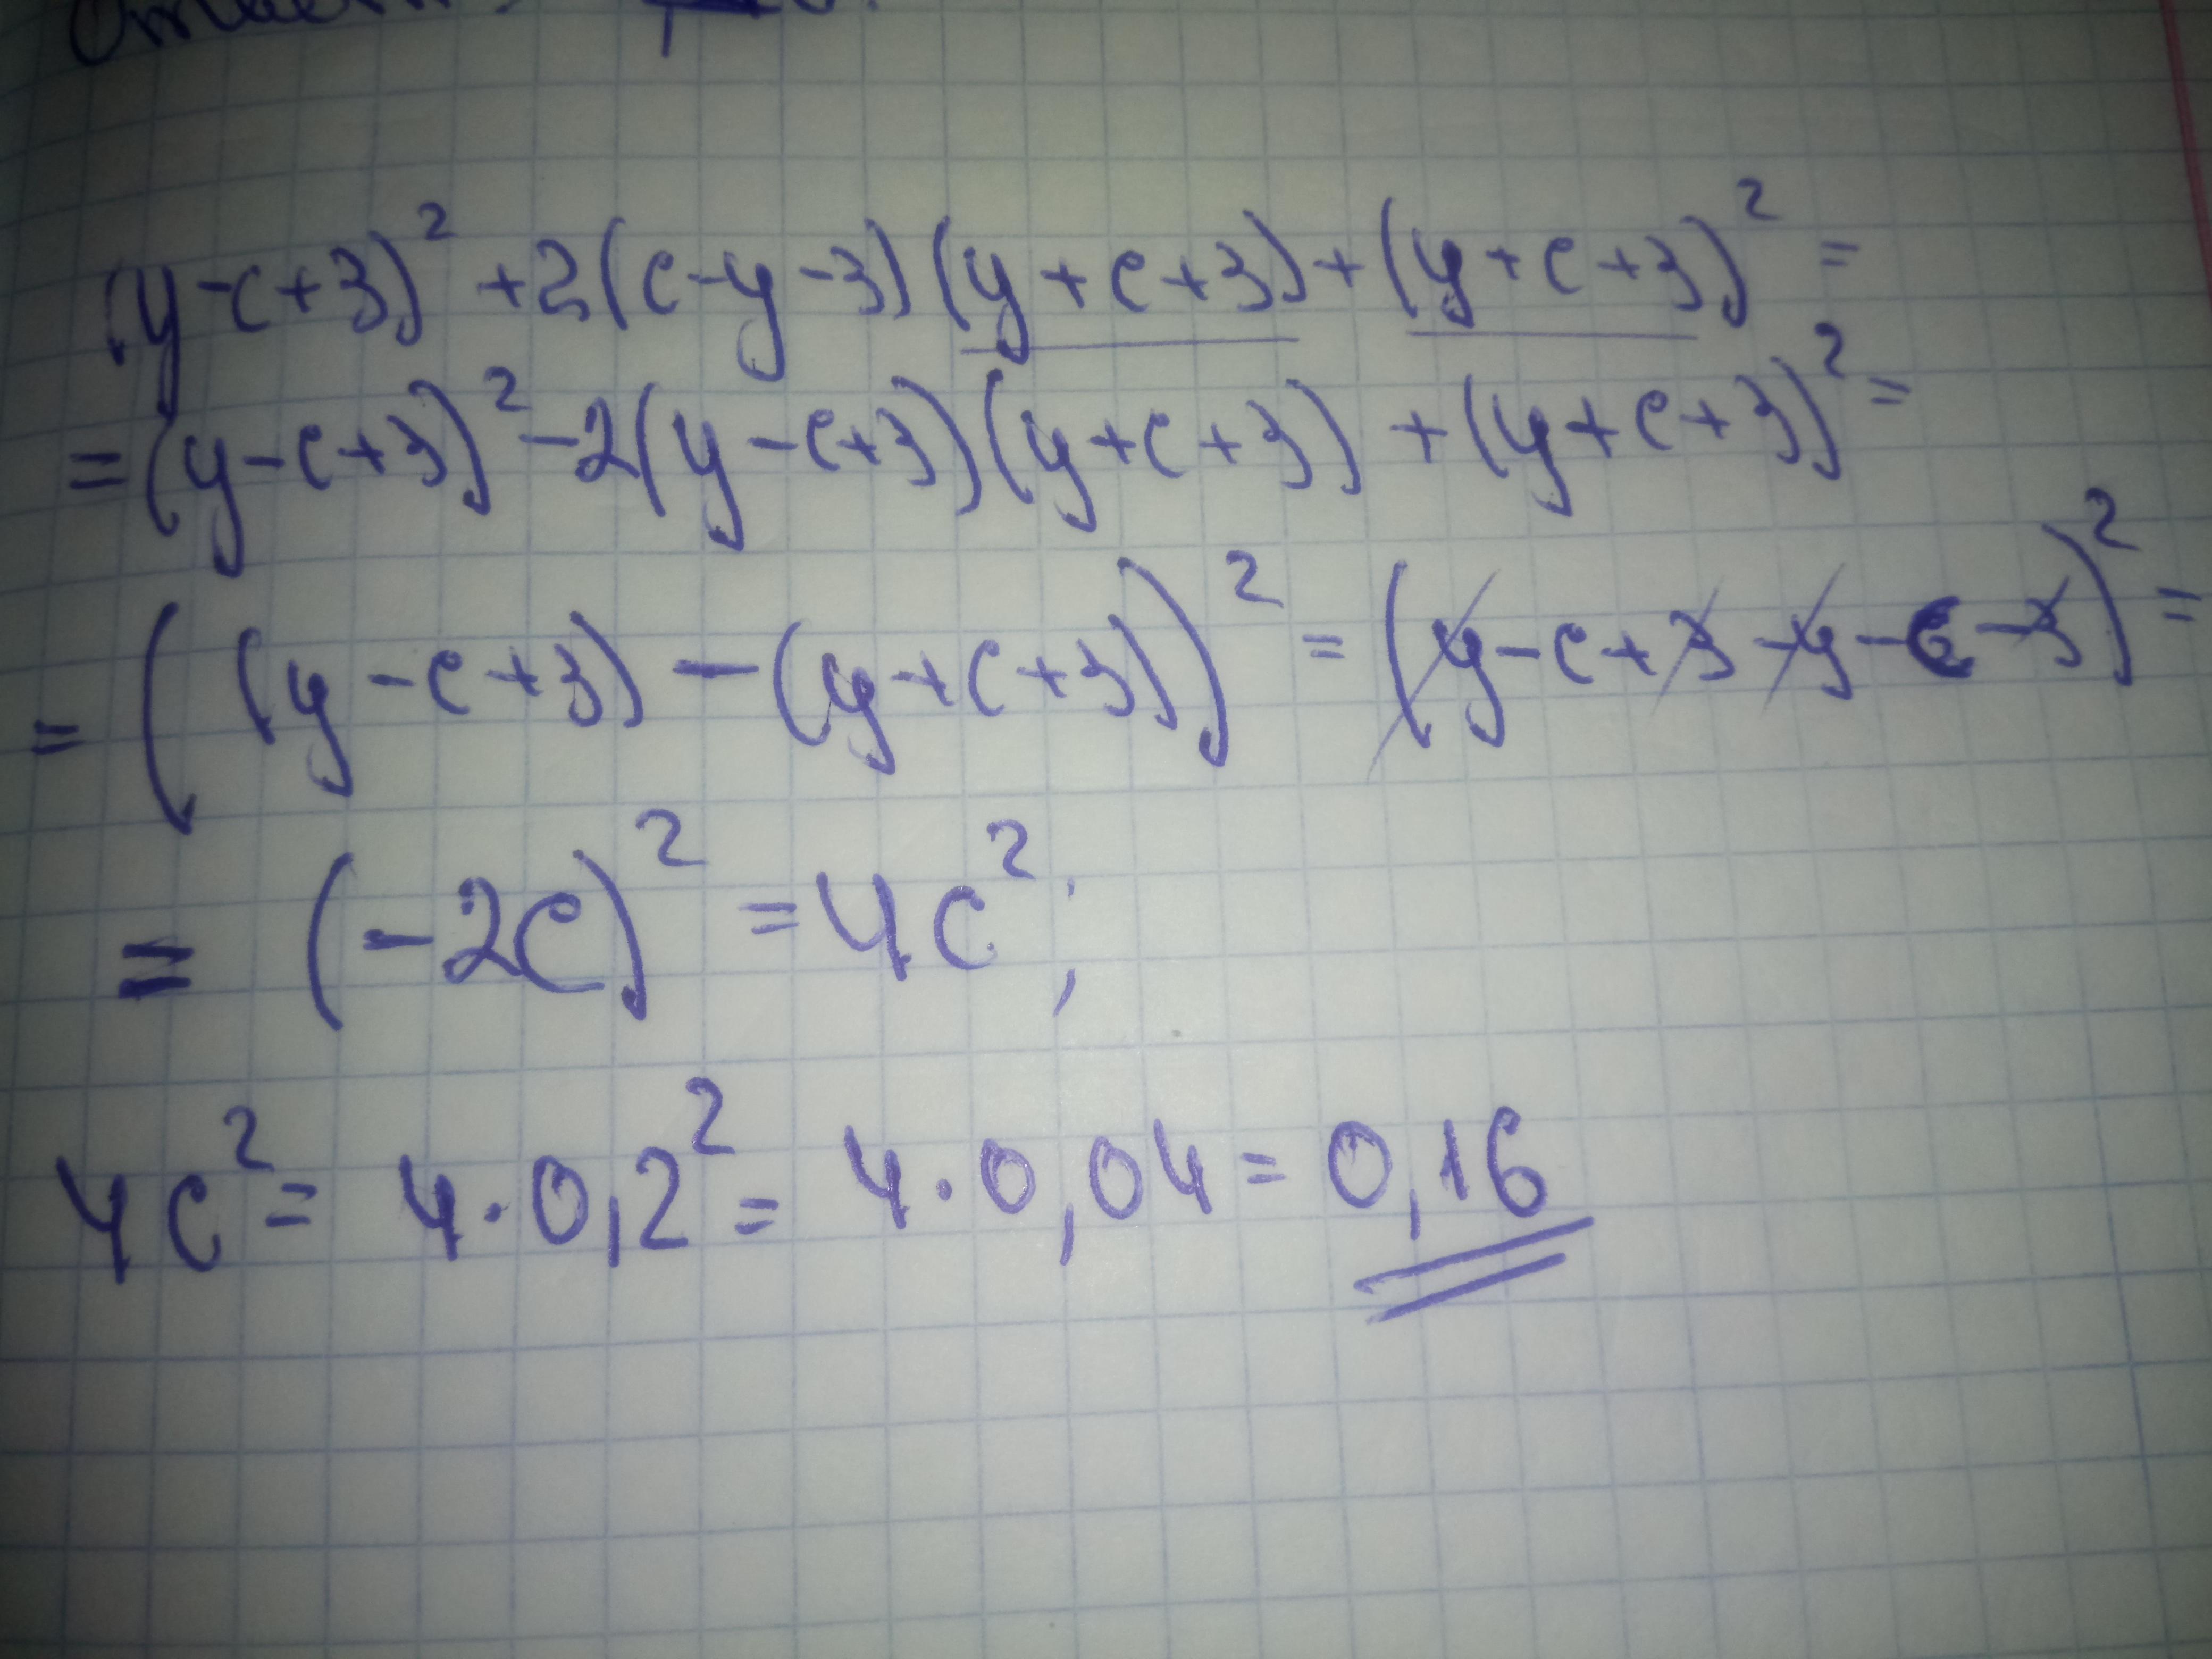 (y-c+3)²+2(c-y-3)(y+c+3)+(y+c+3)²=
=(y-c+3)²-2(y-c+3)(y+c+3)+(y+c+3)²=
=((y-c+3)-(y+c+3))²=(y-c+3-y-c-3)²=
=(-2c)²=4c²;
4c²=4·0,2²=4·0,04=0,16